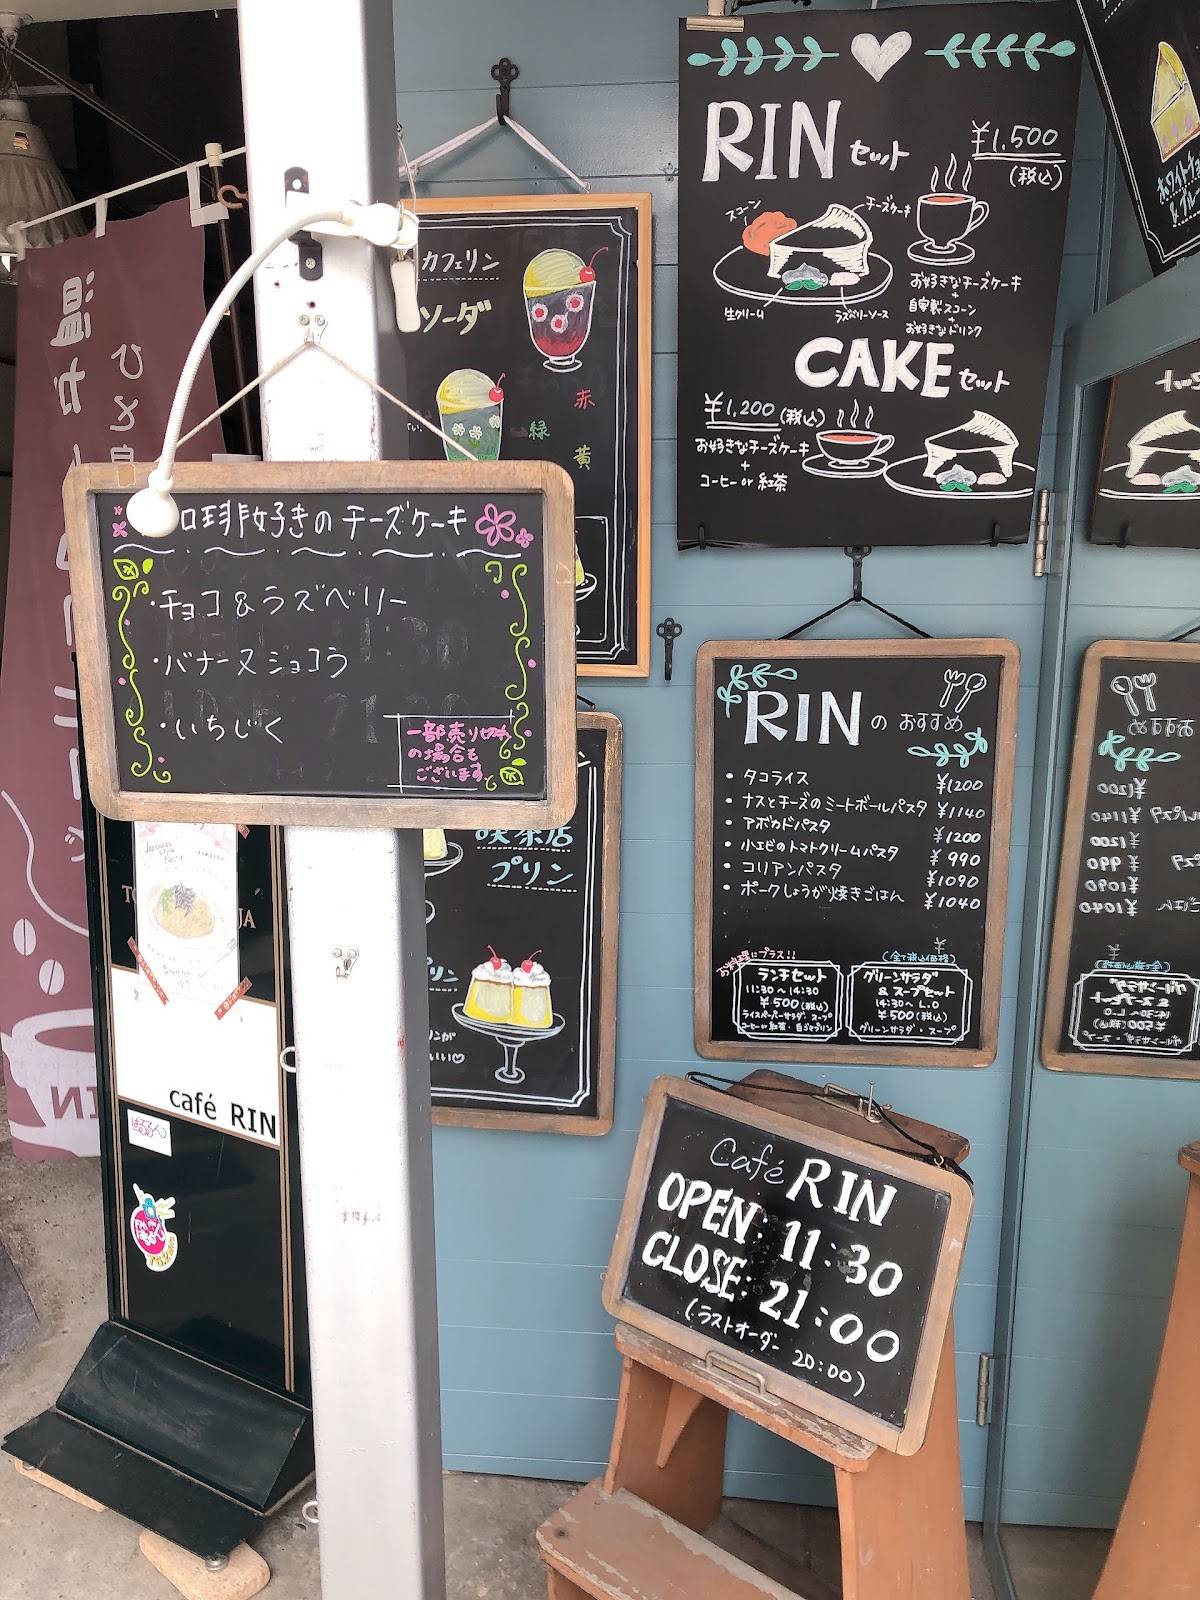 RINセット
¥1,500
(税込)
スコーン
チーズケーキ
生クリーム
ラズベリーソース
お好きなチーズケーキ
+
自家製スコーン
+
お好きなドリンク
CAKEセット
¥1,200(税込)
お好きなチーズケーキ
+
コーヒー or 紅茶
カフェリン
ソーダ
赤
緑
黄
珈琲好きのチーズケーキ
・チョコ&ラズベリー
・バナーヌショコラ
・いちじく
一部売り切れ
の場合も
ございます
喫茶店
プリン
プリン
RINのおすすめ
• タコライス ¥1200
• ナスとチーズのミートボールパスタ ¥1140
• アボカドパスタ ¥1200
• 小エビのトマトクリームパスタ ¥990
• コリアンパスタ ¥1090
• ポークしょうが焼きごはん ¥1040
お料理にプラス!!
(全て税込価格)
ランチセット
11:30〜14:30
¥500(税込)
ライスペーパーサラダ・スープ
グリーンサラダ
&スープセット
14:30〜L.O
¥500(税込)
グリーンサラダ・スープ
Café RIN
OPEN: 11:30
CLOSE: 21:00
(ラストオーダー 20:00)
café RIN
ひと息
温か